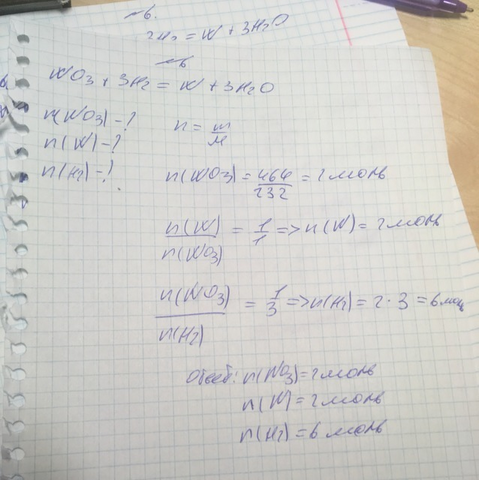 2H2 = W + 3H2O
WO3 + 3H2 = W + 3H2O
n(WO3) - ?
n(W) - ?
n(H2) - ?
n = m/M
n(WO3) = 464/232 = 2 моль
n(W)/n(WO3) = 1/1 => n(W) = 2 моль
n(WO3)/n(H2) = 1/3 => n(H2) = 2 · 3 = 6 моль
Ответ: n(WO3) = 2 моль
n(W) = 2 моль
n(H2) = 6 моль